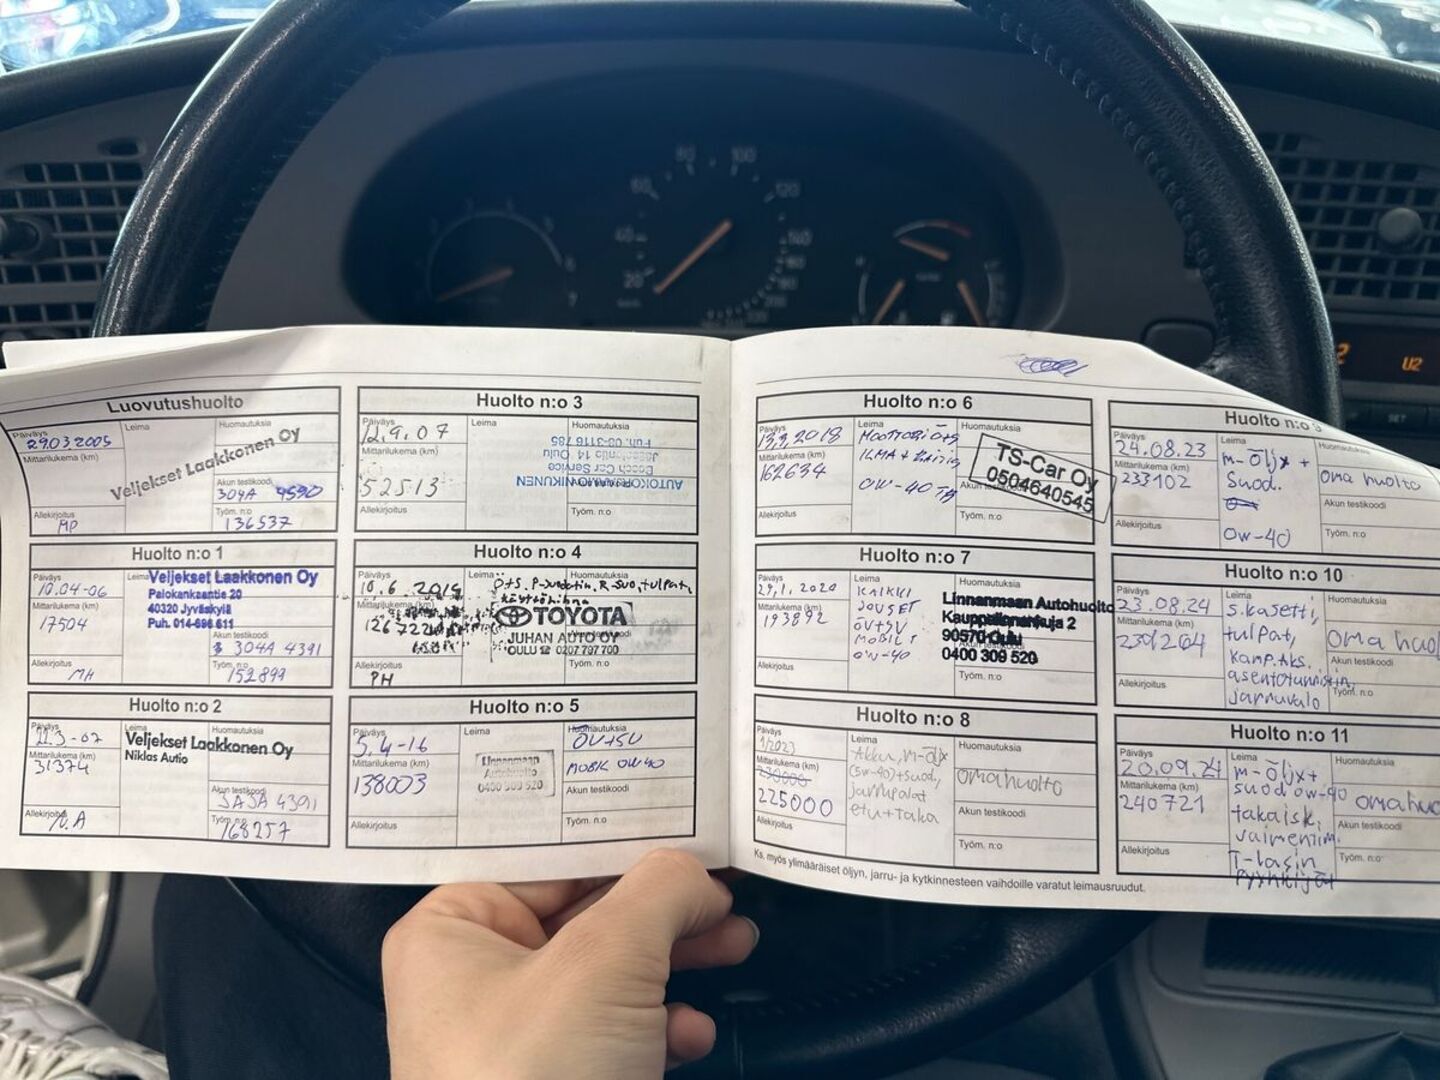 Luovutushuolto
Päiväys
Leima
Huomautuksia
29.03.2005
Mittarilukema (km)
Veljekset Laakkonen Oy
Akun testikoodi
304A 4590
Allekirjoitus
MP
Työm. n:o
136537
Huolto n:o 1
Päiväys
Leima
10.04-06
Veljekset Laakkonen Oy
Palokankaantie 20
40320 Jyväskylä
Puh. 014-696 611
Mittarilukema (km)
17504
Akun testikoodi
304A 4391
Allekirjoitus
MH
Työm. n:o
152899
Huolto n:o 2
Päiväys
Leima
Huomautuksia
22.3-07
Veljekset Laakkonen Oy
Niklas Autio
Mittarilukema (km)
31374
Akun testikoodi
JASA 43911
Allekirjoitus
N.A
Työm. n:o
168257
Huolto n:o 3
Päiväys
Leima
Huomautuksia
12.9.07
Mittarilukema (km)
52513
Bosch Car Service
Allekirjoitus
Työm. n:o
Huolto n:o 4
Päiväys
Huomautuksia
10.6.2014
Mittarilukema (km)
TOYOTA
JUHAN AUTO OY
OULU ☎ 0207 797 700
Allekirjoitus
PH
Työm. n:o
Huolto n:o 5
Päiväys
Leima
Huomautuksia
5.4-16
ÖV+SV
MOBIL 0W40
Mittarilukema (km)
138003
Linnanmaan
Autohuolto
0400 309 520
Akun testikoodi
Allekirjoitus
Työm. n:o
Huolto n:o 6
Päiväys
Leima
Huomautuksia
13.2.2018
Mittarilukema (km)
162634
0W-40
TS-Car Oy
0504640545
Allekirjoitus
Työm. n:o
Huolto n:o 7
Päiväys
Leima
Huomautuksia
29.1.2020
KAIKKI
Mittarilukema (km)
193892
ÖV+SV
MOBIL 1
0W-40
Linnanmaan Autohuolto
Kauppalinnankuja 2
90570 Oulu
0400 309 520
Allekirjoitus
Työm. n:o
Huolto n:o 8
Päiväys
Leima
Huomautuksia
1/2023
Akku, m-öljx
(5w-40)+suod,
jarrupalat
etu+taka
omahuolto
Mittarilukema (km)
230000
225000
Akun testikoodi
Allekirjoitus
Työm. n:o
Huolto n:o 9
Päiväys
Leima
24.08.23
m-öljx +
suod.
0w-40
oma huolto
Mittarilukema (km)
233102
Akun testikoodi
Allekirjoitus
Työm. n:o
Huolto n:o 10
Päiväys
Leima
Huomautuksia
23.08.24
s.kasetti,
tulpat,
kamp.aks.
asentotunnistin,
jarruvalo
Mittarilukema (km)
Akun testikoodi
Allekirjoitus
Työm. n:o
Huolto n:o 11
Päiväys
Leima
Huomautuksia
m-öljx+
suod 0w-40
takaisk.
vaimentim.
T-lasin
pyyhkijät
Mittarilukema (km)
240721
Akun testikoodi
Allekirjoitus
Työm. n:o
Ks. myös ylimääräiset öljyn, jarru- ja kytkinnesteen vaihdoille varatut leimausruudut.
20
40
60
80
100
120
140
SET